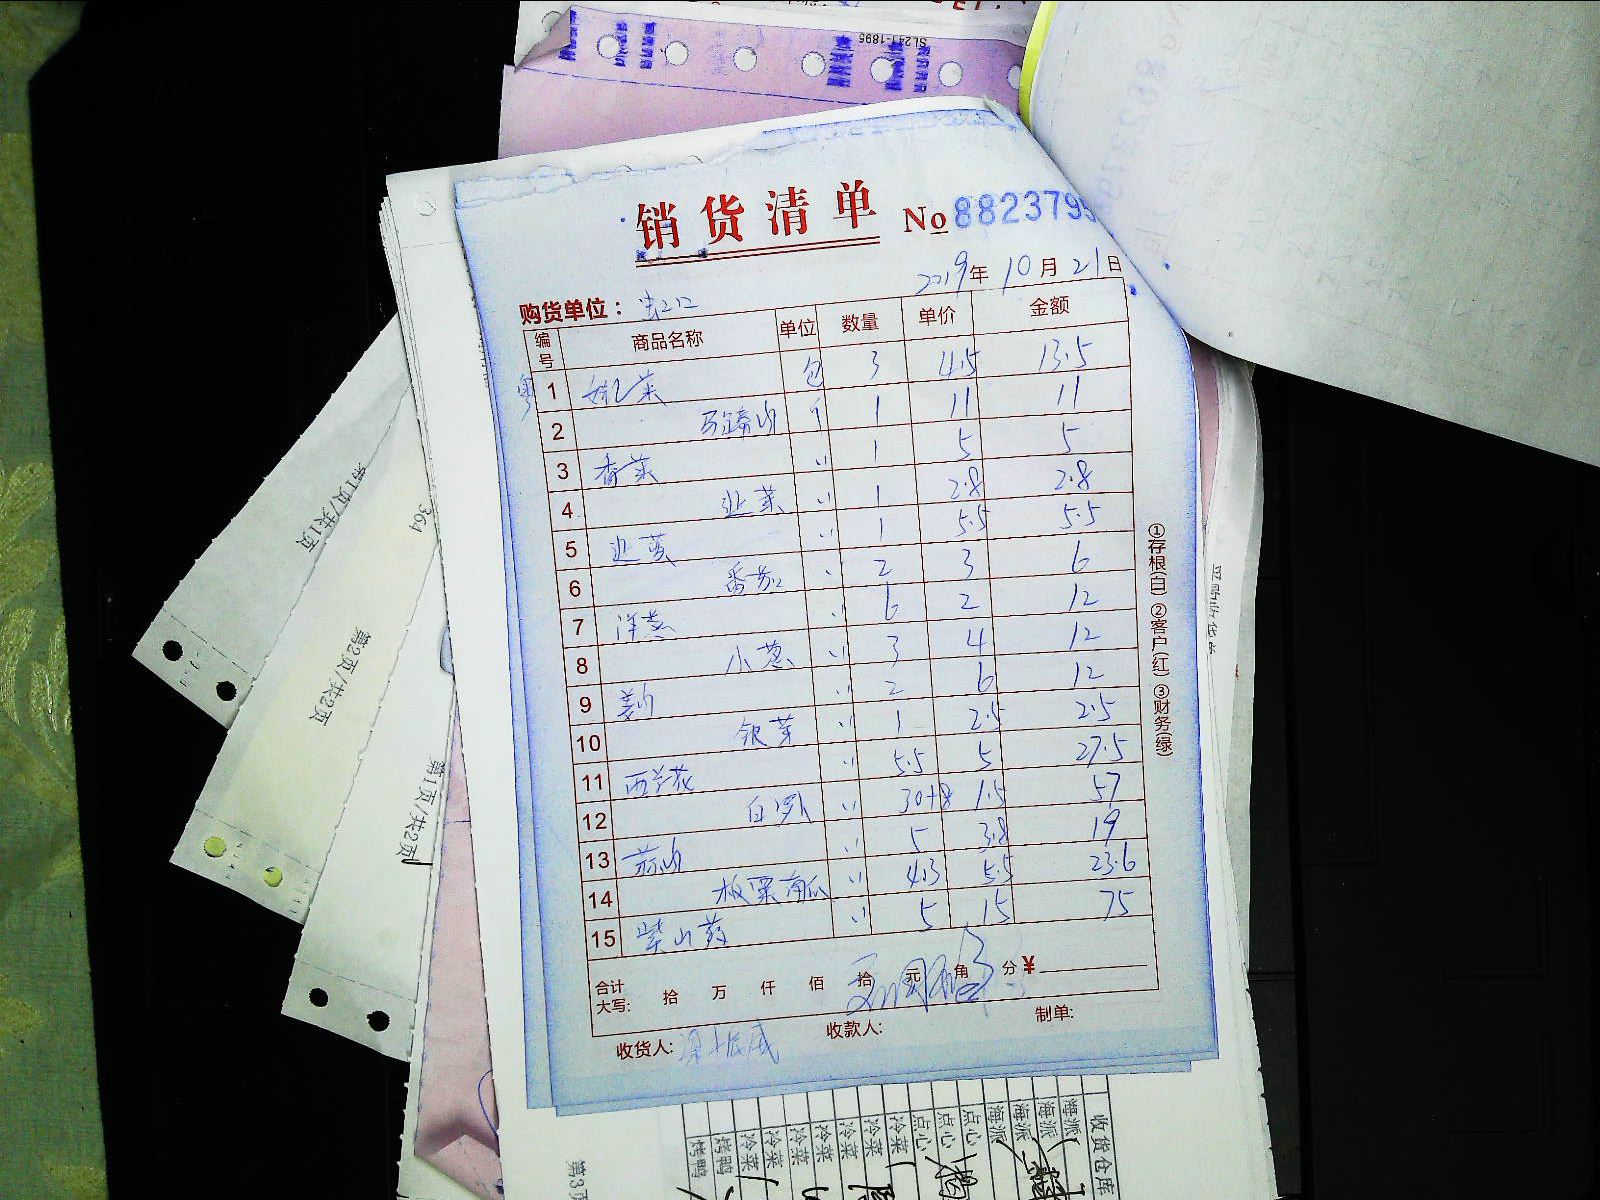 SL241-1895
销货清单 No 8823795
2019年 10月 21日
购货单位:
编号 商品名称 单位 数量 单价 金额
1 娃菜 包 3 4.5 13.5
2 马蹄肉 个 1 11 11
3 香菜 〃 1 5 5
4 韭菜 〃 1 2.8 2.8
5 〃 1 5.5 5.5
6 番茄 〃 2 3 6
7 洋葱 〃 6 2 12
8 小葱 〃 3 4 12
9 姜肉 〃 2 6 12
10 银芽 〃 1 2.5 2.5
11 西兰花 〃 5.5 5 27.5
12 白罗卜 〃 30+8 1.5 57
13 蒜肉 〃 5 3.8 19
14 板栗南瓜 〃 4.3 5.5 23.6
15 柴山药 〃 5 15 75
合计大写: 拾 万 仟 佰 拾 元 角 分 ¥
收货人: 收款人: 制单:
①存根(白) ②客户(红) ③财务(绿)
第1页/共1页
364
第2页/共2页
第1页/共2页
收货仓库
海派
海派
海派
海派
点心
点心
点心
冷菜
冷菜
冷菜
冷菜
冷菜
冷菜
冷菜
烤鸭
烤鸭
第3页